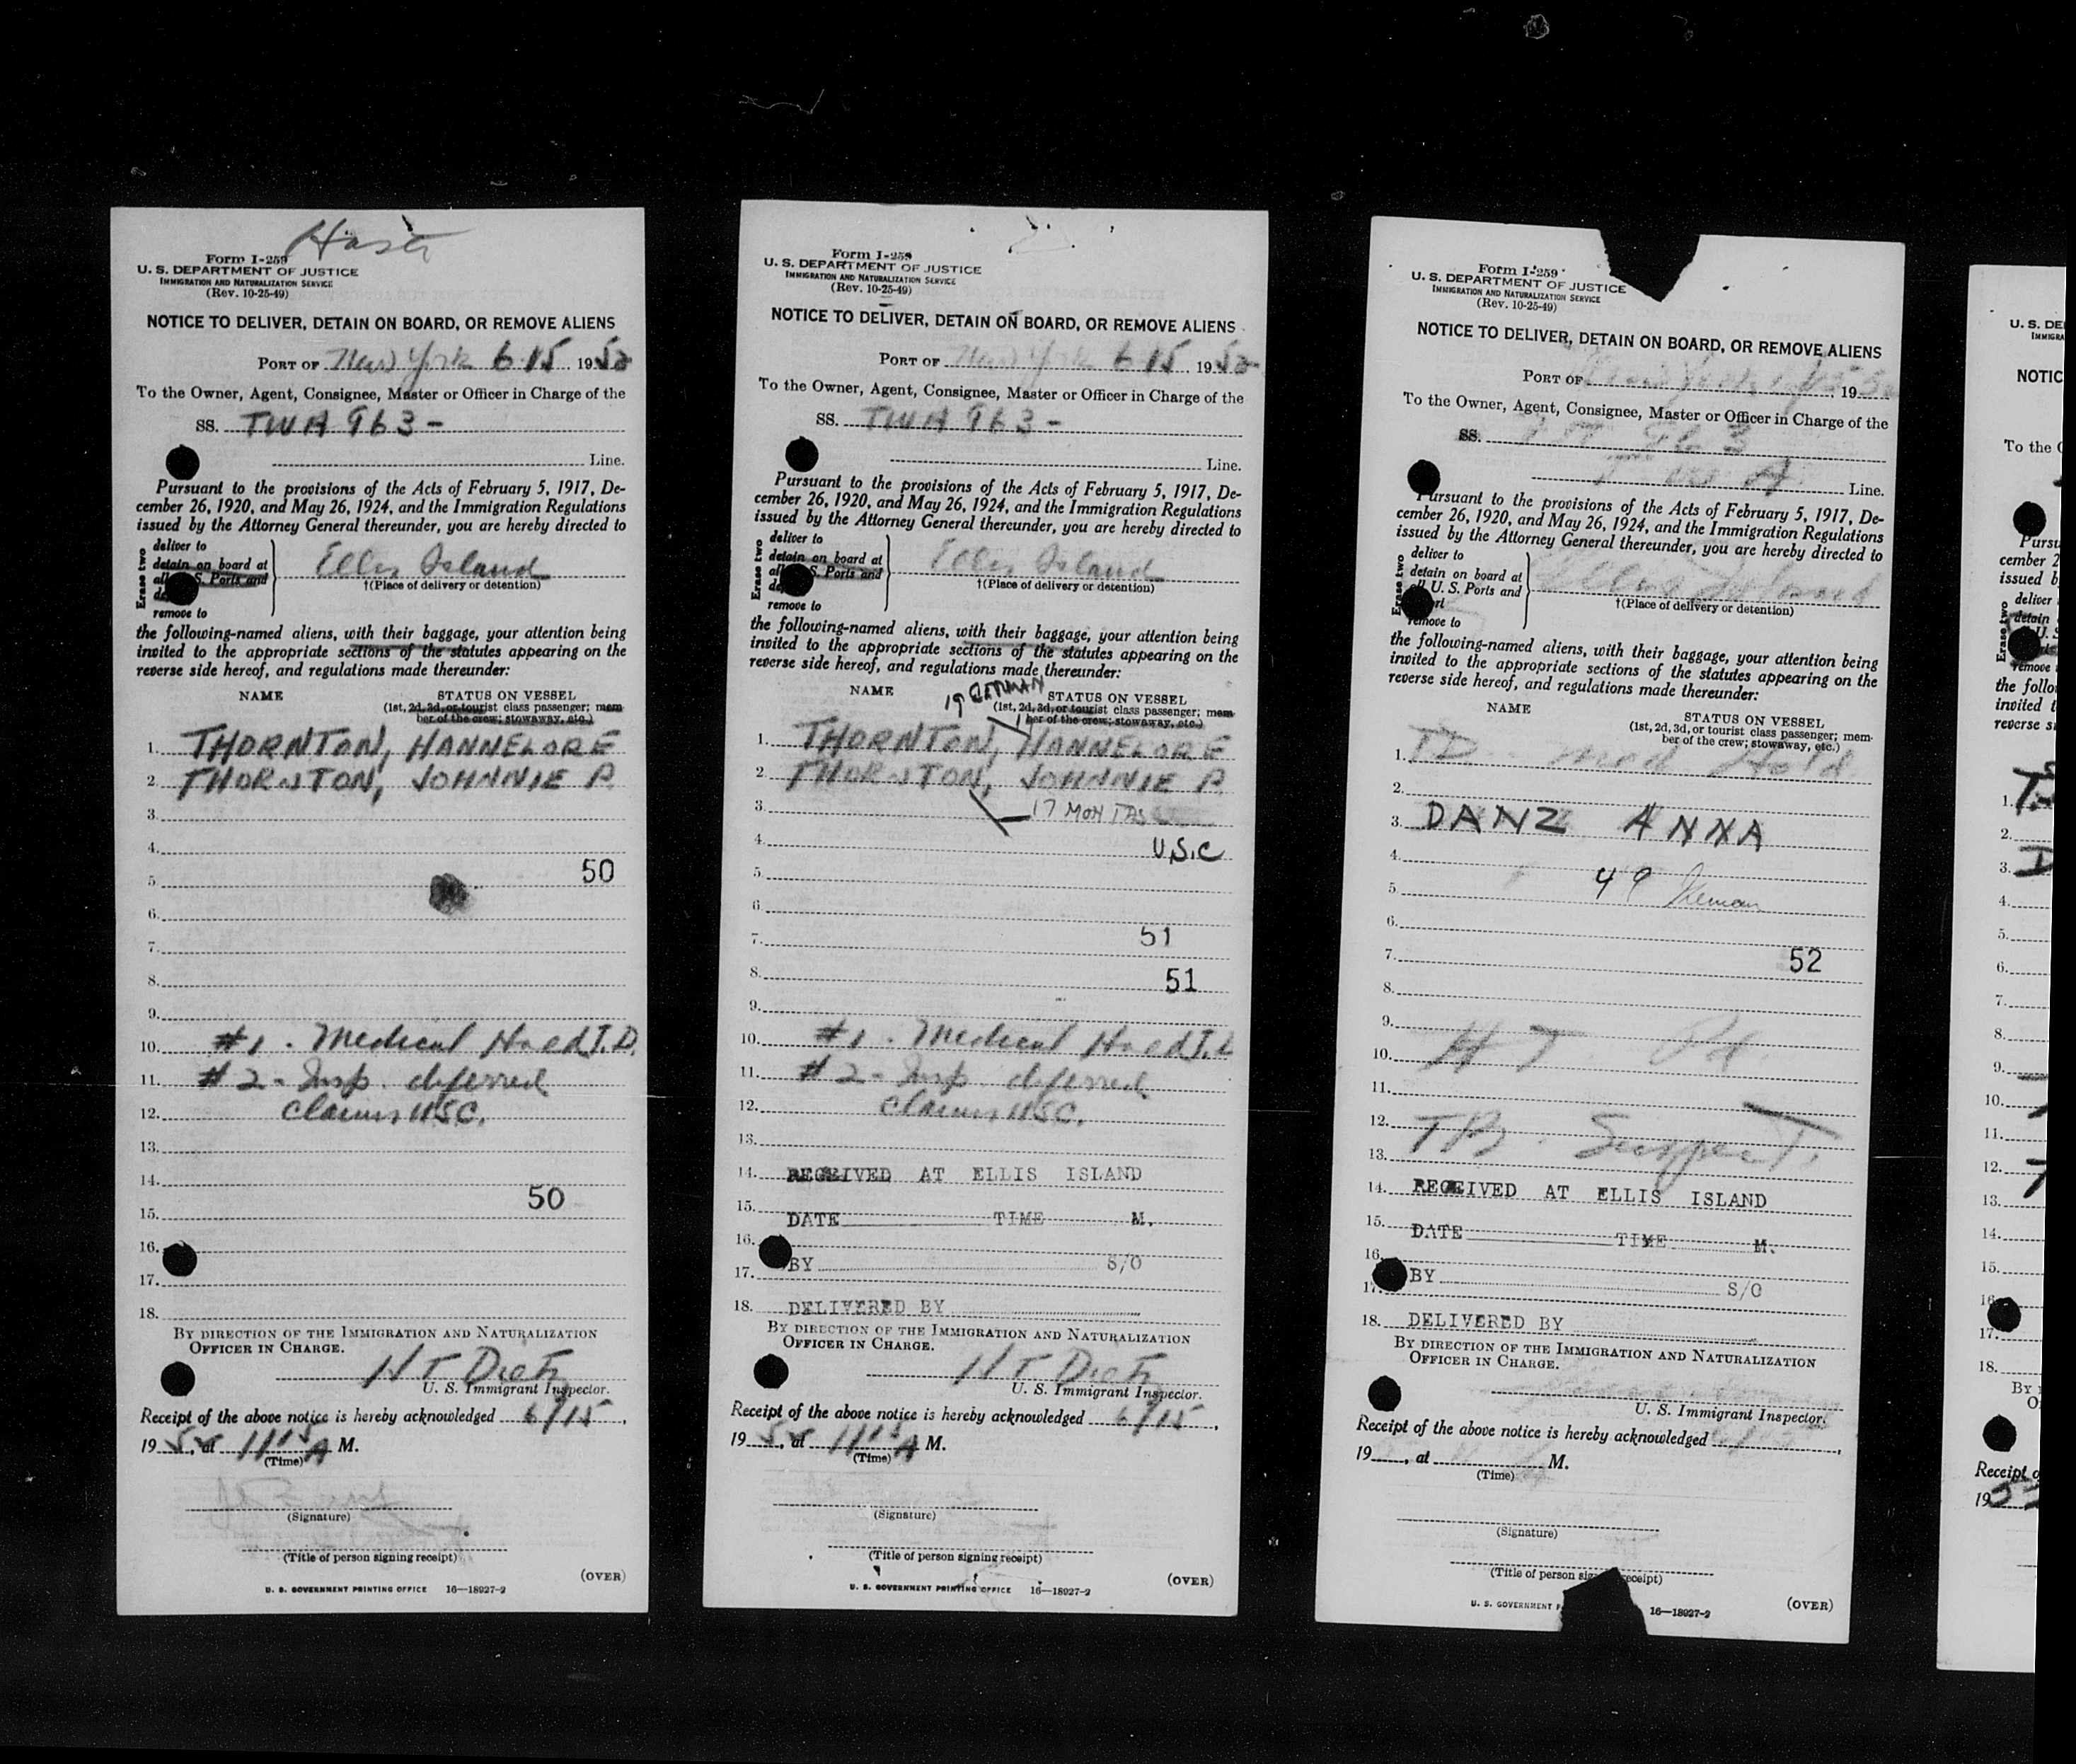 Form I-259
U. S. DEPARTMENT OF JUSTICE
IMMIGRATION AND NATURALIZATION SERVICE
(Rev. 10-25-49)
NOTICE TO DELIVER, DETAIN ON BOARD, OR REMOVE ALIENS
PORT OF New York 6 15 1952
To the Owner, Agent, Consignee, Master or Officer in Charge of the
SS. TWA 963-
Line.
Pursuant to the provisions of the Acts of February 5, 1917, De-
cember 26, 1920, and May 26, 1924, and the Immigration Regulations
issued by the Attorney General thereunder, you are hereby directed to
Erase two
deliver to
detain on board at
all U.S. Ports and
remove to
Ellis Island
†(Place of delivery or detention)
the following-named aliens, with their baggage, your attention being
invited to the appropriate sections of the statutes appearing on the
reverse side hereof, and regulations made thereunder:
NAME STATUS ON VESSEL
(1st, 2d, 3d, or tourist class passenger; mem-
ber of the crew; stowaway, etc.)
1. THORNTON, HANNELORE
2. THORNTON, JOHNNIE P.
3.
4.
5. 50
6.
7.
8.
9.
10. #1. Medical Hold T.D.
11. #2- Insp. deferred
12. Claims USC.
13.
14.
15. 50
16.
17.
18.
BY DIRECTION OF THE IMMIGRATION AND NATURALIZATION
OFFICER IN CHARGE.
H T Dietz
U. S. Immigrant Inspector.
Receipt of the above notice is hereby acknowledged 6/15,
1952, at 1115 A M.
(Time)
(Signature)
(Title of person signing receipt)
(OVER)
U. S. GOVERNMENT PRINTING OFFICE 16—18927-2
Form I-259
U. S. DEPARTMENT OF JUSTICE
IMMIGRATION AND NATURALIZATION SERVICE
(Rev. 10-25-49)
NOTICE TO DELIVER, DETAIN ON BOARD, OR REMOVE ALIENS
PORT OF New York 6 15 1952
To the Owner, Agent, Consignee, Master or Officer in Charge of the
SS. TWA 963-
Line.
Pursuant to the provisions of the Acts of February 5, 1917, De-
cember 26, 1920, and May 26, 1924, and the Immigration Regulations
issued by the Attorney General thereunder, you are hereby directed to
Erase two
deliver to
detain on board at
all U.S. Ports and
remove to
Ellis Island
†(Place of delivery or detention)
the following-named aliens, with their baggage, your attention being
invited to the appropriate sections of the statutes appearing on the
reverse side hereof, and regulations made thereunder:
19 GERMAN
NAME STATUS ON VESSEL
(1st, 2d, 3d, or tourist class passenger; mem-
ber of the crew; stowaway, etc.)
1. THORNTON, HANNELORE
2. THORNTON, JOHNNIE P
3. 17 MONTHS
4. U.S.C
5.
6.
7. 51
8. 51
9.
10. #1. Medical Hold T.D
11. #2- Insp. deferred
12. Claims USC.
13.
14. RECEIVED AT ELLIS ISLAND
15. DATE TIME M.
16.
BY S/O
17.
18. DELIVERED BY
BY DIRECTION OF THE IMMIGRATION AND NATURALIZATION
OFFICER IN CHARGE.
H T Dietz
U. S. Immigrant Inspector.
Receipt of the above notice is hereby acknowledged 6/15,
1952, at 1115 A M.
(Time)
(Signature)
(Title of person signing receipt)
(OVER)
U. S. GOVERNMENT PRINTING OFFICE 16—18927-2
Form I-259
U. S. DEPARTMENT OF JUSTICE
IMMIGRATION AND NATURALIZATION SERVICE
(Rev. 10-25-49)
NOTICE TO DELIVER, DETAIN ON BOARD, OR REMOVE ALIENS
PORT OF New York 19
To the Owner, Agent, Consignee, Master or Officer in Charge of the
SS. 963
T W A Line.
Pursuant to the provisions of the Acts of February 5, 1917, De-
cember 26, 1920, and May 26, 1924, and the Immigration Regulations
issued by the Attorney General thereunder, you are hereby directed to
Erase two
deliver to
detain on board at
all U.S. Ports and
remove to
Ellis Island
†(Place of delivery or detention)
the following-named aliens, with their baggage, your attention being
invited to the appropriate sections of the statutes appearing on the
reverse side hereof, and regulations made thereunder:
NAME STATUS ON VESSEL
(1st, 2d, 3d, or tourist class passenger; mem-
ber of the crew; stowaway, etc.)
1. TD Med Hold
2.
3. DANZ ANNA
4.
5. 49 German
6.
7. 52
8.
9.
10. H T Pd.
11.
12. TB. Suspect.
13.
14. RECEIVED AT ELLIS ISLAND
15. DATE TIME M.
16.
BY S/O
17.
18. DELIVERED BY
BY DIRECTION OF THE IMMIGRATION AND NATURALIZATION
OFFICER IN CHARGE.
U. S. Immigrant Inspector.
Receipt of the above notice is hereby acknowledged
19 , at M.
(Time)
(Signature)
(Title of person signing receipt)
(OVER)
U. S. GOVERNMENT 16—18927-2